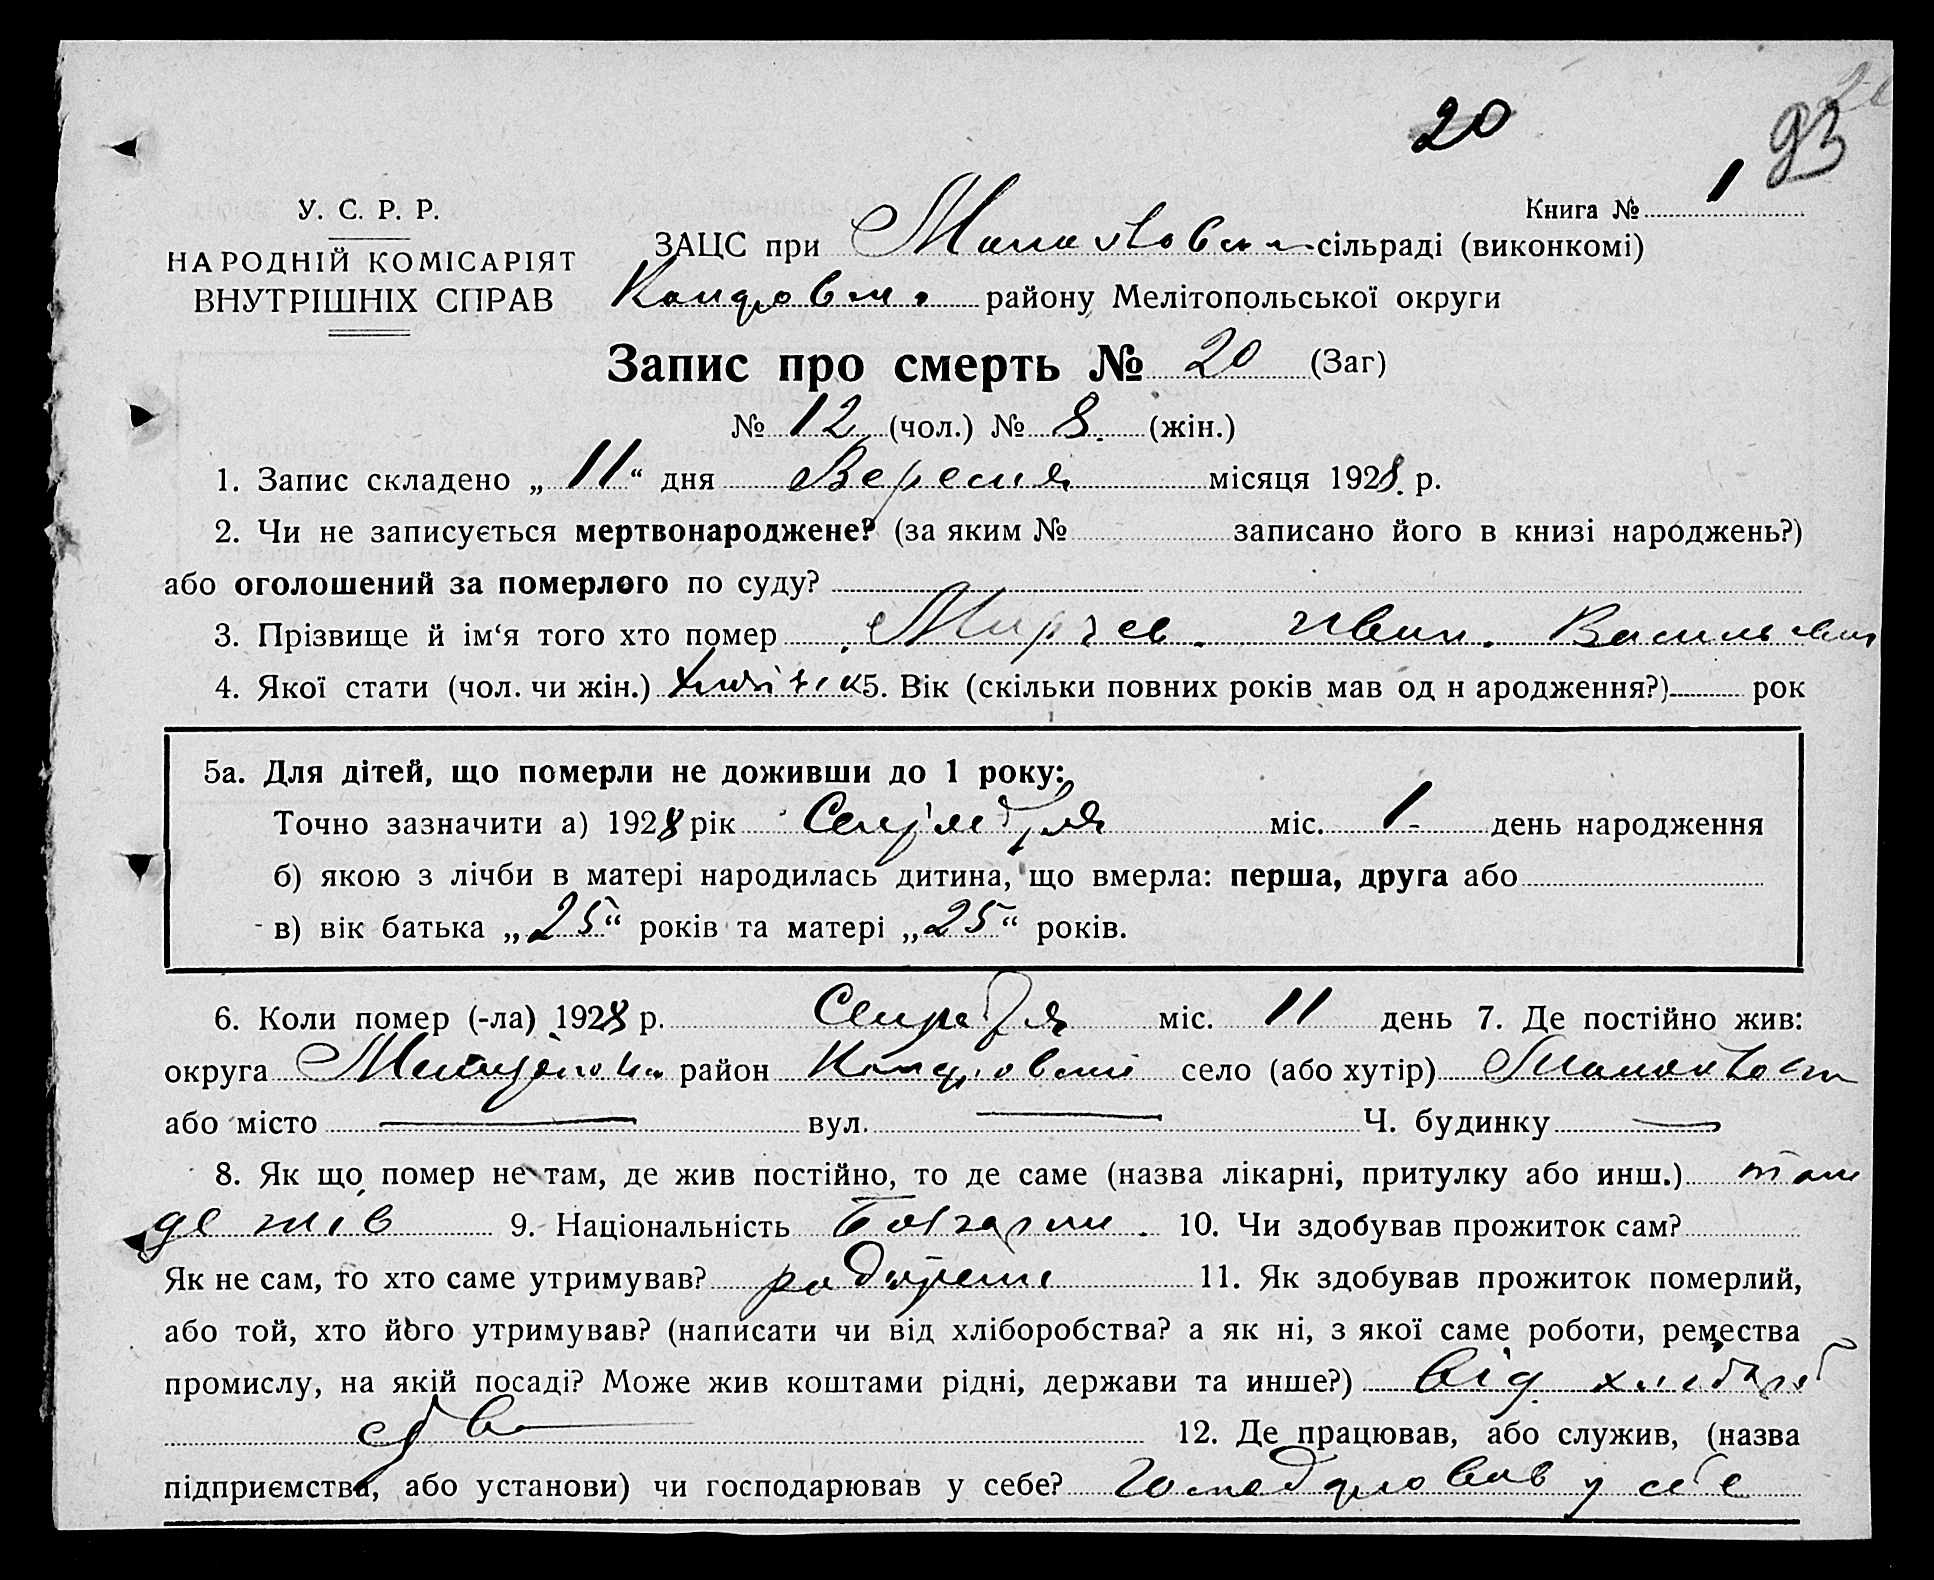 20
93
У. С. Р. Р.
НАРОДНІЙ КОМІСАРІЯТ
ВНУТРІШНІХ СПРАВ
Книга № 1
ЗАЦС при сільраді (виконкомі)
району Мелітопольської округи
Запис про смерть № 20 (Заг)
№ 12 (чол.) № 8. (жін.)
1. Запис складено „ 11 “ дня Вересня місяця 1928. р.
2. Чи не записується мертвонароджене? (за яким № записано його в книзі народжень?)
або оголошений за померлого по суду?
3. Прізвище й ім‘я того хто помер Мирчев. Иван. Васильевич
4. Якої стати (чол. чи жін.) 5. Вік (скільки повних років мав од н ародження?) рок
5а. Для дітей, що померли не доживши до 1 року:
Точно зазначити а) 1928 рік Сентября міс. 1 день народження
б) якою з лічби в матері народилась дитина, що вмерла: перша, друга або
в) вік батька „ 25 “ років та матері „ 25 “ років.
6. Коли помер (-ла) 1928 р. Сентября міс. 11 день 7. Де постійно жив:
округа район село (або хутір)
або місто — вул. — Ч. будинку —
8. Як що помер не там, де жив постійно, то де саме (назва лікарні, притулку або инш.) там
де жив 9. Національність Болгарин. 10. Чи здобував прожиток сам?
Як не сам, то хто саме утримував? родители 11. Як здобував прожиток померлий,
або той, хто його утримував? (написати чи від хліборобства? а як ні, з якої саме роботи, ремества
промислу, на якій посаді? Може жив коштами рідні, держави та инше?) від хлібороб
ства 12. Де працював, або служив, (назва
підприємства, або установи) чи господарював у себе? господарював у себе